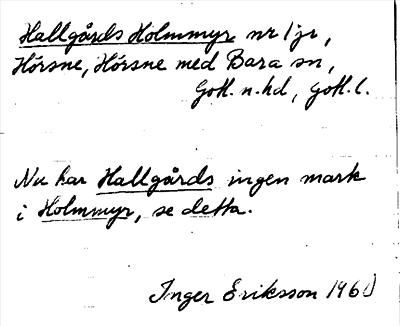 Hallgårds Holmmyr nr 1 jr,
Hörsne, Hörsne med Bara sn,
Gotl. n. hd, Gotl. l.
Nu har Hallgårds ingen mark
i Holmmyr, se detta.
Inger Eriksson